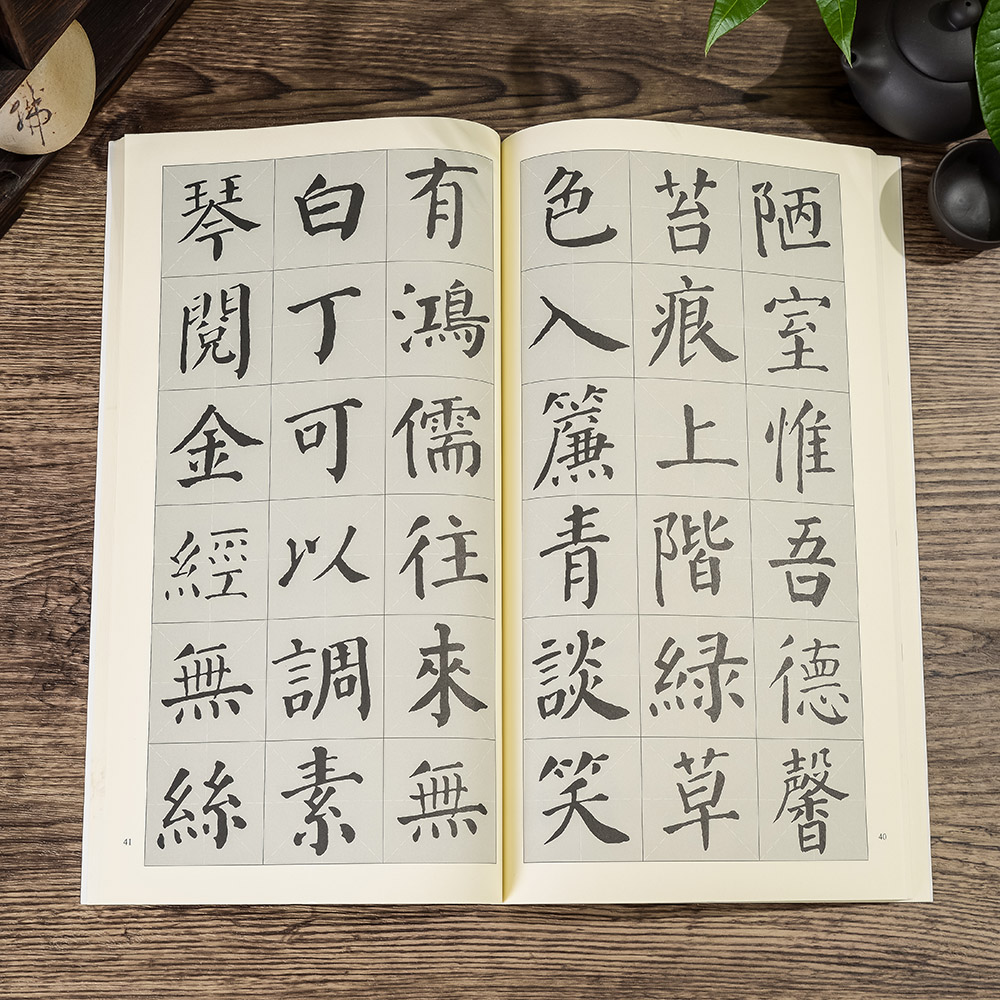 陋室惟吾德馨
苔痕上階緑草
色入簾青談笑
40
有鴻儒往來無
白丁可以調素
琴閱金經無絲
41